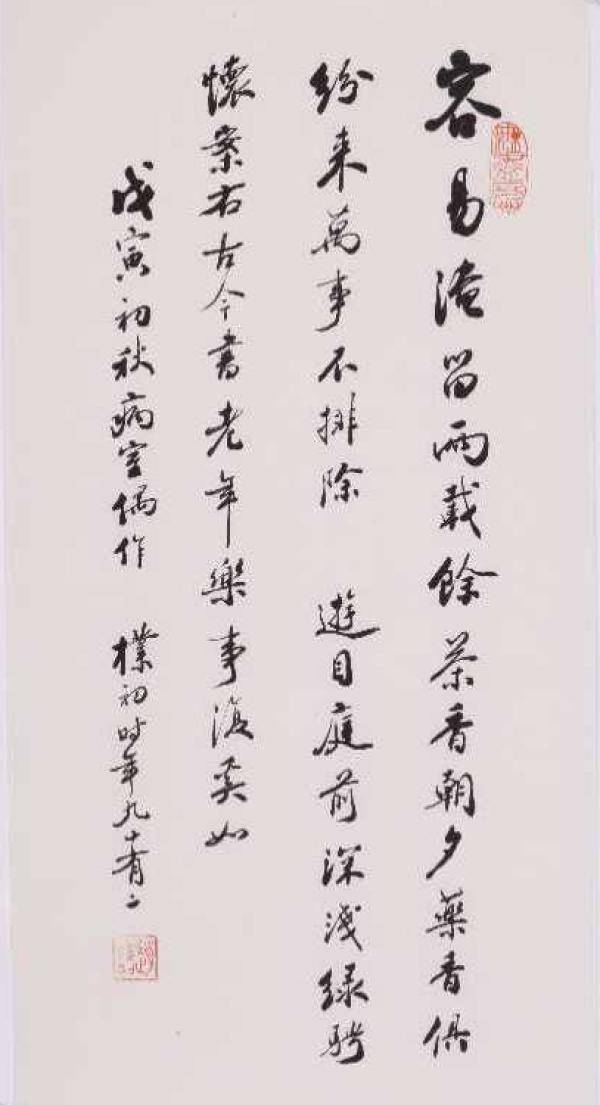 容易淹留兩載餘茶香朝夕藥香俱
紛来萬事不排除　遊目庭前深淺緑騁
懷案右古今書老年樂事復奚如
戊寅初秋病室偶作　樸初時年九十有二